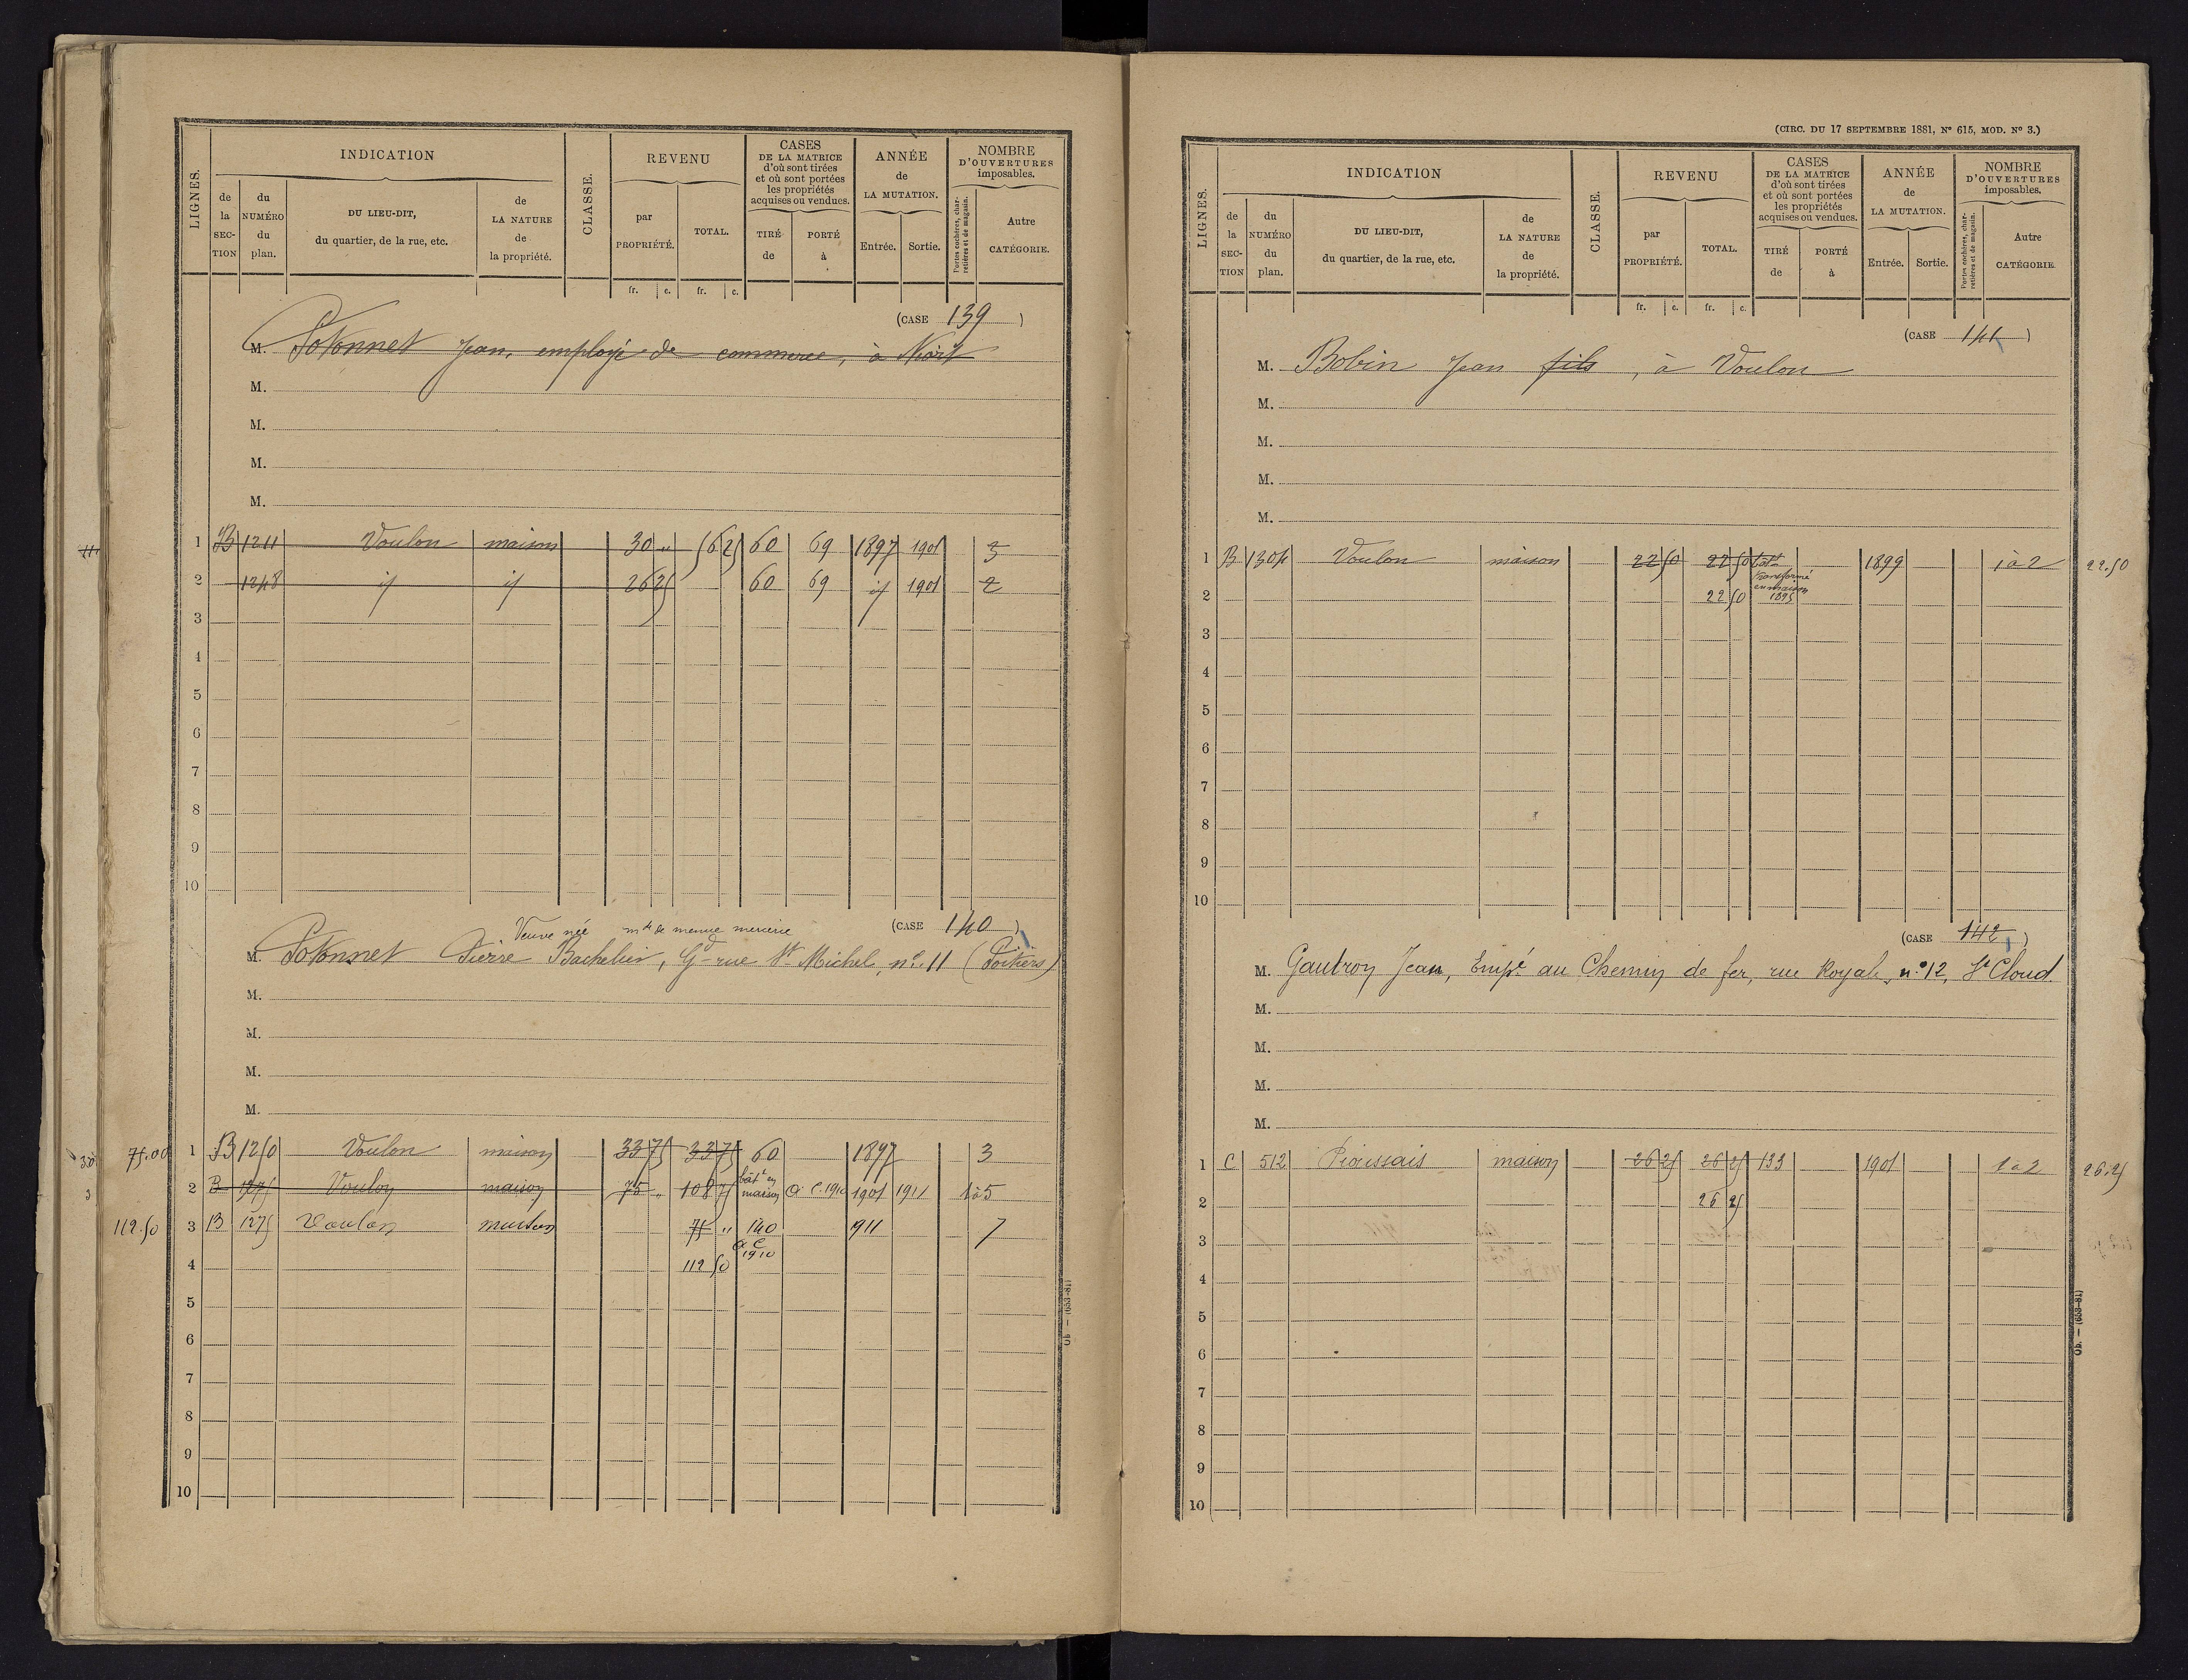 LIGNES.
INDICATION
de la SECTION
du NUMÉRO du plan.
DU LIEU-DIT, du quartier, de la rue, etc.
de LA NATURE de la propriété.
CLASSE.
REVENU
par PROPRIÉTÉ.
TOTAL.
fr. c. fr. c.
CASES DE LA MATRICE d'où sont tirées et où sont portées les propriétés acquises ou vendues.
TIRÉ de
PORTÉ à
ANNÉE de LA MUTATION.
Entrée. Sortie.
NOMBRE D'OUVERTURES imposables.
Portes cochères, charretières et de magasin.
Autre CATÉGORIE.
(CASE 139)
M. Potonnet Jean, employé de commerce, à Niort
M.
M.
M.
M.
1 B 1211 Voulon maison 30 " 56 25 60 69 1897 1901 3
2 1248 id id 26 25 60 69 id 1901 2
3
4
5
6
7
8
9
10
(CASE 140)
Veuve née mde de menue mercerie
M. Potonnet Pierre Bachelier, Gd rue St Michel, n° 11 (Poitiers)
M.
M.
M.
M.
75.00 1 B 1250 Voulon maison 33 75 33 75 60 1897 3
2 B 1275 Voulon maison 75 " 108 75 bât t en maison a C. 1910 1901 1911 1 à 5
112.50 3 B 1275 Voulon maison 75 " 140 911 7
a C 1910
4 112 50
5
6
7
8
9
10
Ob. — (653-81)
(CIRC. DU 17 SEPTEMBRE 1881, N° 615, MOD. N° 3.)
LIGNES.
INDICATION
de la SECTION
du NUMÉRO du plan.
DU LIEU-DIT, du quartier, de la rue, etc.
de LA NATURE de la propriété.
CLASSE.
REVENU
par PROPRIÉTÉ.
TOTAL.
fr. c. fr. c.
CASES DE LA MATRICE d'où sont tirées et où sont portées les propriétés acquises ou vendues.
TIRÉ de
PORTÉ à
ANNÉE de LA MUTATION.
Entrée. Sortie.
NOMBRE D'OUVERTURES imposables.
Portes cochères, charretières et de magasin.
Autre CATÉGORIE.
(CASE 141)
M. Bobin Jean fils, à Voulon
M.
M.
M.
M.
1 B 1304 Voulon maison 22 50 22 50 bât t transformé en maison 1895 1899 1 à 2 22.50
2 22 50
3
4
5
6
7
8
9
10
(CASE 142)
M. Gautron Jean, Empé au Chemin de fer, rue Royale, n° 12, St Cloud.
M.
M.
M.
M.
1 C 512 Pioussais maison 26 25 26 25 133 1901 1 à 2 26.25
2 26 25
3
4
5
6
7
8
9
10
Ob. — (653-81)